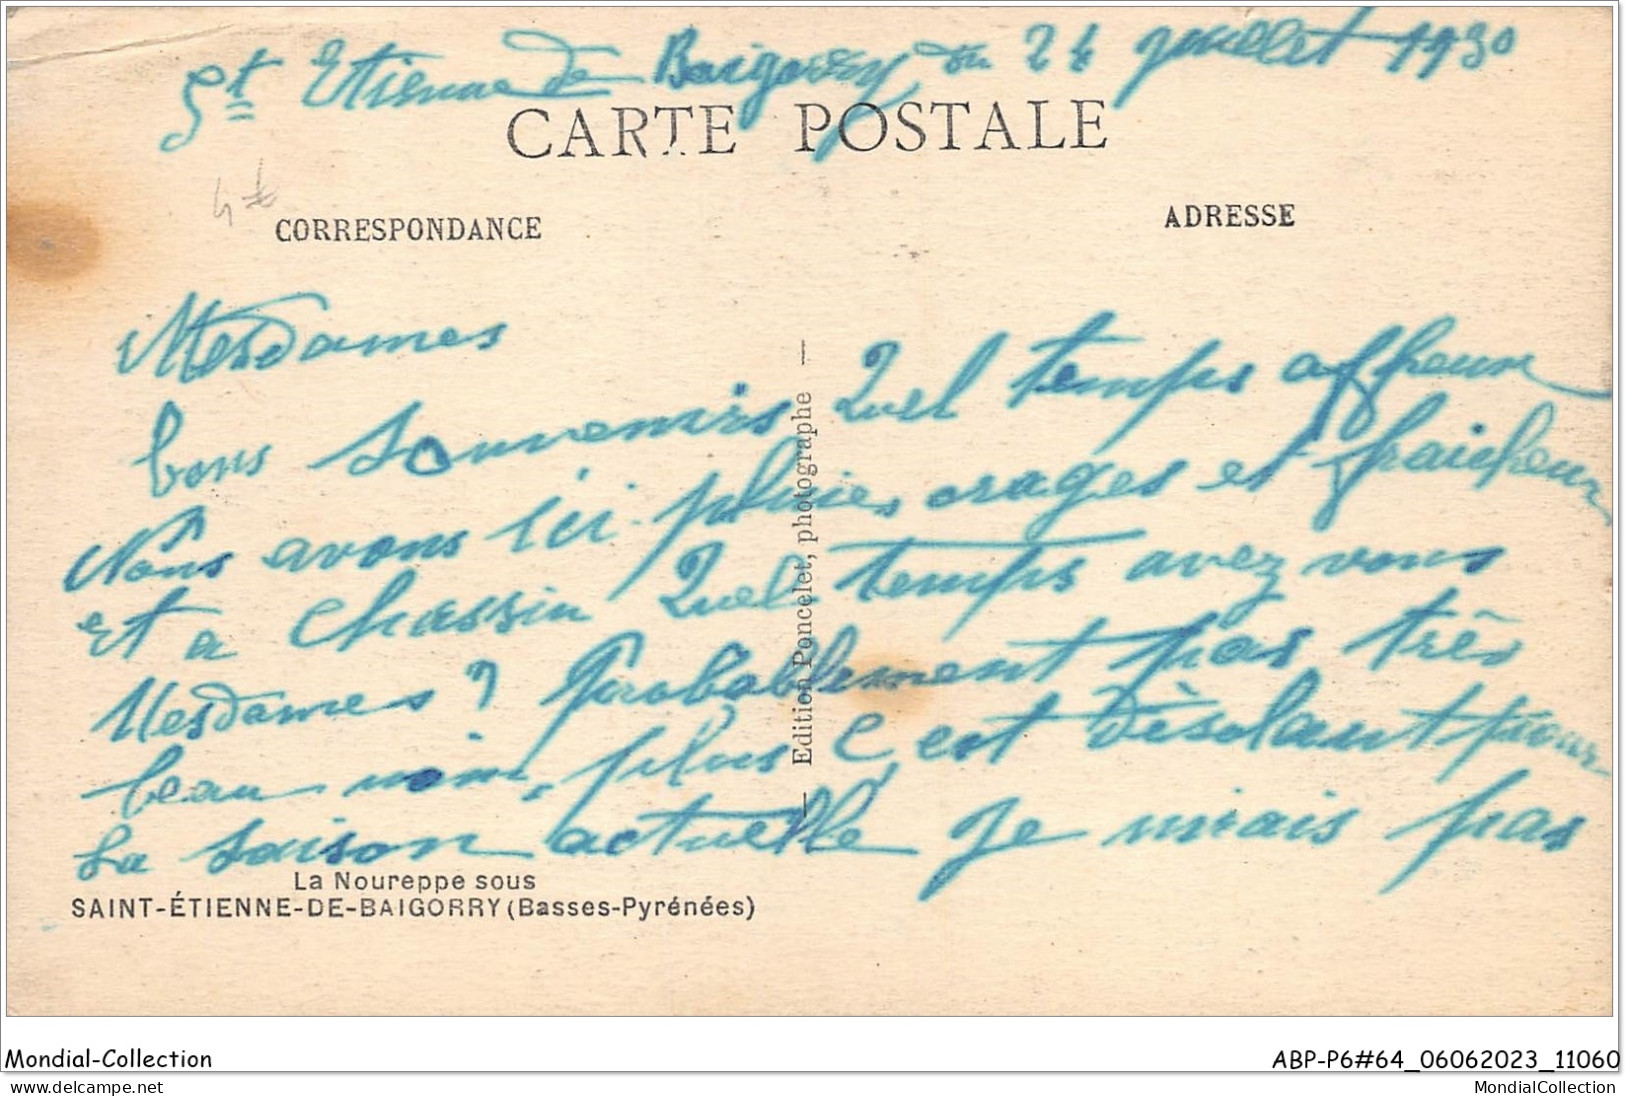 St Etienne de Baigorry du 24 juillet 1930
CARTE POSTALE
CORRESPONDANCE
ADRESSE
Mesdames
bons souvenirs Quel temps affreux
Nous avons ici pluies, orages et fraicheur
et a Chassin Quel temps avez vous
Mesdames ? Probablement pas très
beau non plus C'est dèsolant pour
La saison actuelle Je n'irais pas
— Edition Poncelet, photographe —
La Noureppe sous
SAINT-ÉTIENNE-DE-BAIGORRY (Basses-Pyrénées)
Mondial-Collection
ABP-P6#64_06062023_11060
www.delcampe.net
MondialCollection